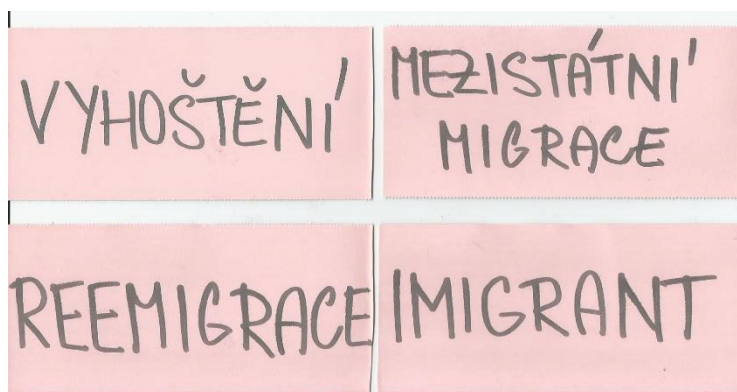 VYHOŠTĚNÍ
MEZISTÁTNÍ
MIGRACE
REEMIGRACE
IMIGRANT